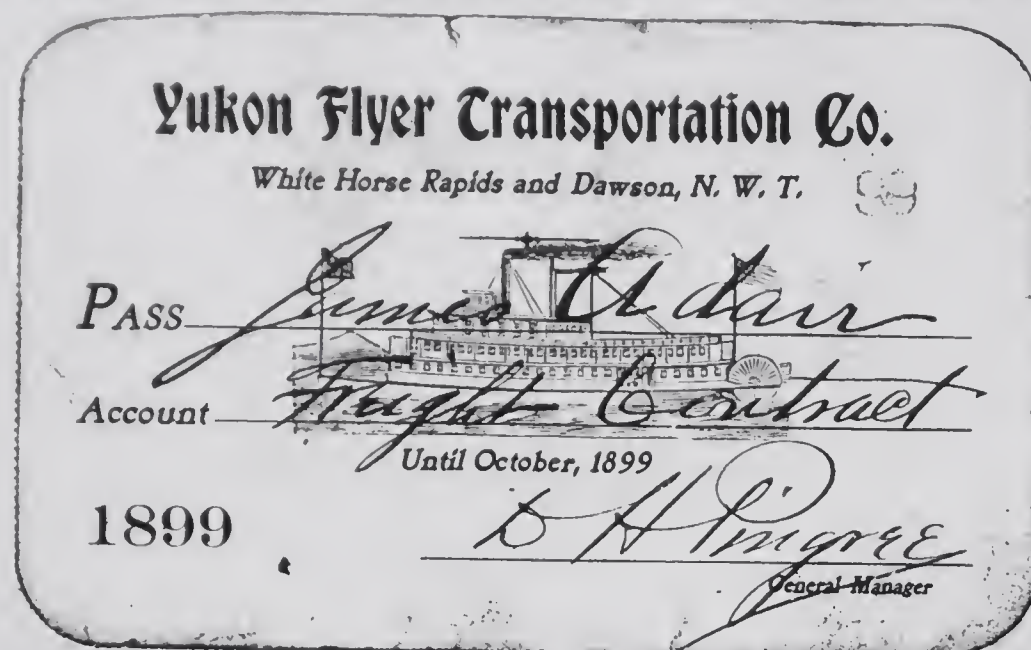 Yukon Flyer Transportation Co.
White Horse Rapids and Dawson, N. W. T.
PASS James Adair
Account Freight Contract
Until October, 1899
1899
D H Pingree
General Manager